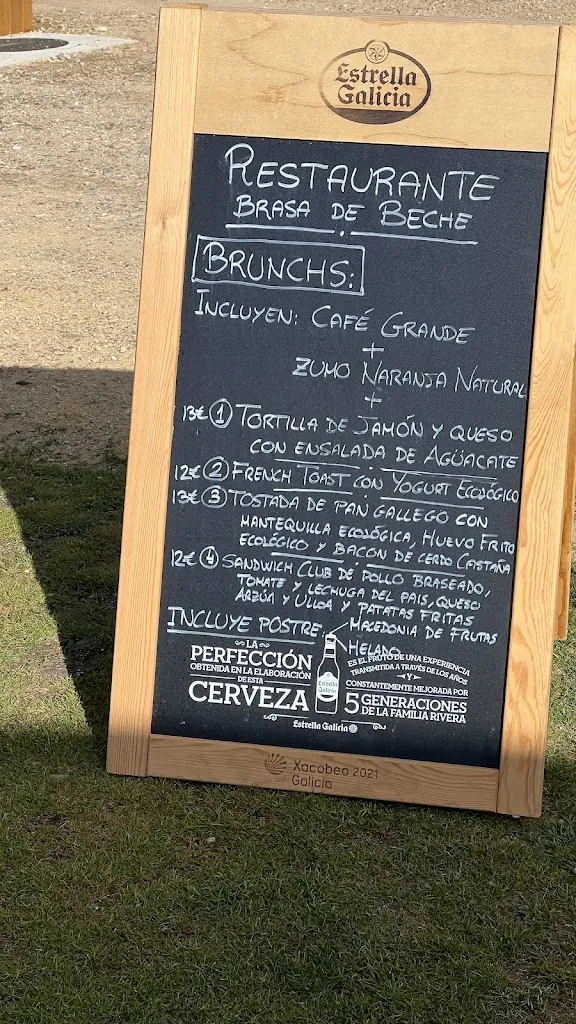 Estrella
Galicia
RESTAURANTE
BRASA DE BECHE
BRUNCHS:
INCLUYEN: CAFÉ GRANDE
+
ZUMO NARANJA NATURAL
+
13€ 1 TORTILLA DE JAMÓN Y QUESO
CON ENSALADA DE AGÜACATE
12€ 2 FRENCH TOAST CON YOGURT ECOLÓGICO
13€ 3 TOSTADA DE PAN GALLEGO CON
MANTEQUILLA ECOLÓGICA, HUEVO FRITO
ECOLÓGICO Y BACON DE CERDO CASTAÑA
12€ 4 SANDWICH CLUB DE POLLO BRASEADO,
TOMATE Y LECHUGA DEL PAIS, QUESO
ARZÚA Y ULLOA Y PATATAS FRITAS
INCLUYE POSTRE: MACEDONIA DE FRUTAS
HELADO
LA
PERFECCIÓN
OBTENIDA EN LA ELABORACIÓN
DE ESTA
CERVEZA
Estrella
Galicia
ES EL FRUTO DE UNA EXPERIENCIA
TRANSMITIDA A TRAVÉS DE LOS AÑOS
Y
CONSTANTEMENTE MEJORADA POR
5 GENERACIONES
DE LA FAMILIA RIVERA
Estrella Galicia
Xacobeo 2021
Galicia